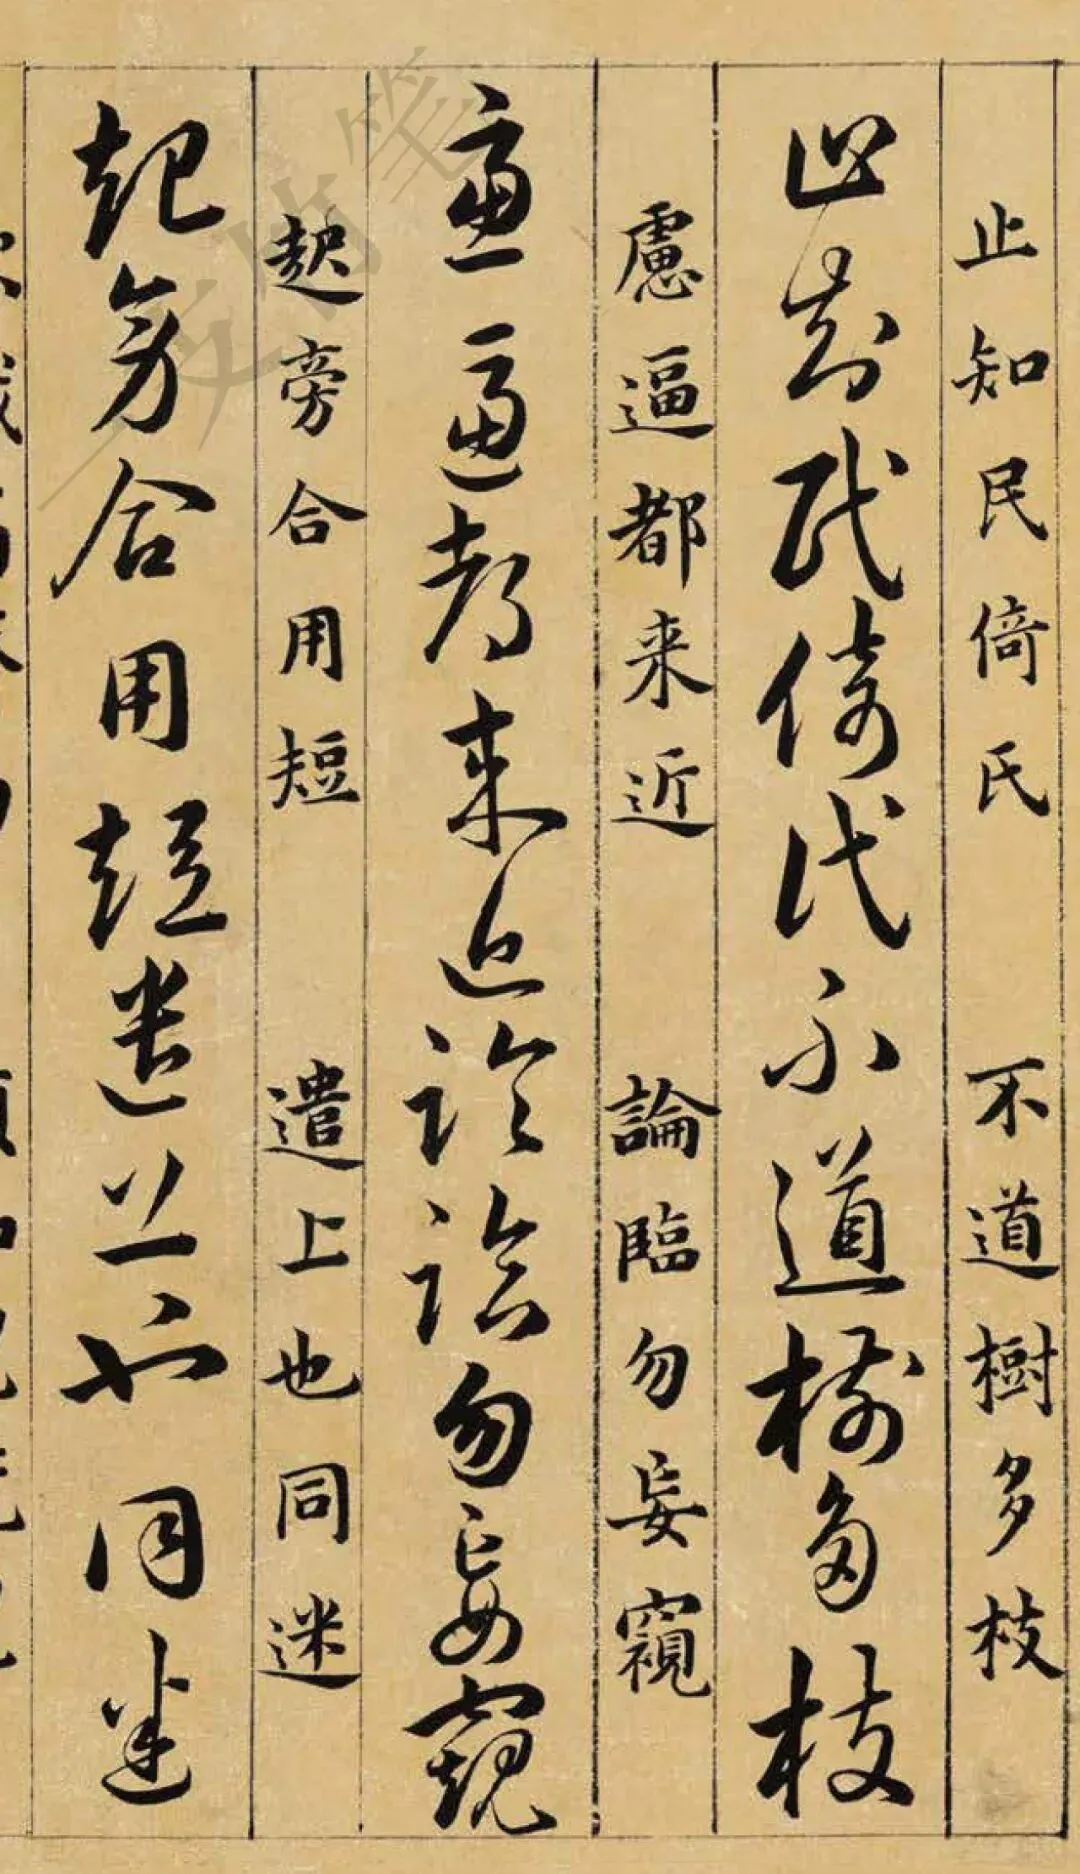 止知民倚氏 不道樹多枝
止知民倚氏不道樹多枝
慮逼都来近 論臨勿妄窺
慮逼都来近論臨勿妄窺
起旁合用短 遣上也同迷
起旁合用短遣上也同迷